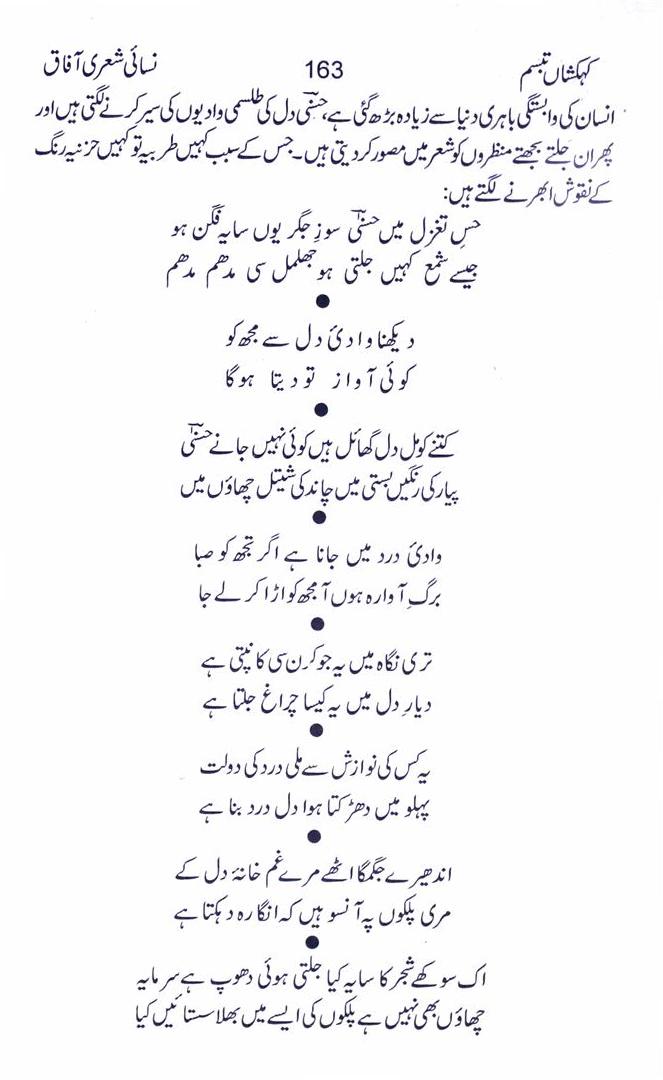 کہکشاں تبسم 163 نسائی شعری آفاق
انسان کی وابستگی باہری دنیا سے زیادہ بڑھ گئی ہے، حسنیٰ دل کی طلسمی وادیوں کی سیر کرنے لگتی ہیں اور
پھر ان جلتے بجھتے منظروں کو شعر میں مصور کر دیتی ہیں۔ جس کے سبب کہیں طربیہ تو کہیں حزنیہ رنگ
کے نقوش ابھرنے لگتے ہیں:
حسِ تغزل میں حسنیٰ سوزِ جگر یوں سایہ فگن ہو
جیسے شمع کہیں جلتی ہو جھلمل سی مدھم مدھم
●
دیکھنا وادیٔ دل سے مجھ کو
کوئی آواز تو دیتا ہوگا
●
کتنے کومل دل گھائل ہیں کوئی نہیں جانے حسنیٰ
پیار کی رنگیں بستی میں چاند کی شیتل چھاؤں میں
●
وادیٔ درد میں جانا ہے اگر تجھ کو صبا
برگِ آوارہ ہوں آ مجھ کو اڑا کر لے جا
●
تری نگاہ میں یہ جو کرن سی کانپتی ہے
دیارِ دل میں یہ کیسا چراغ جلتا ہے
●
یہ کس کی نوازش سے ملی درد کی دولت
پہلو میں دھڑکتا ہوا دل درد بنا ہے
●
اندھیرے جگمگا اٹھے مرے غم خانۂ دل کے
مری پلکوں پہ آنسو ہیں کہ انگارہ دہکتا ہے
●
اک سوکھے شجر کا سایہ کیا جلتی ہوئی دھوپ ہے سرمایہ
چھاؤں بھی نہیں ہے پلکوں کی ایسے میں بھلا سستائیں کیا